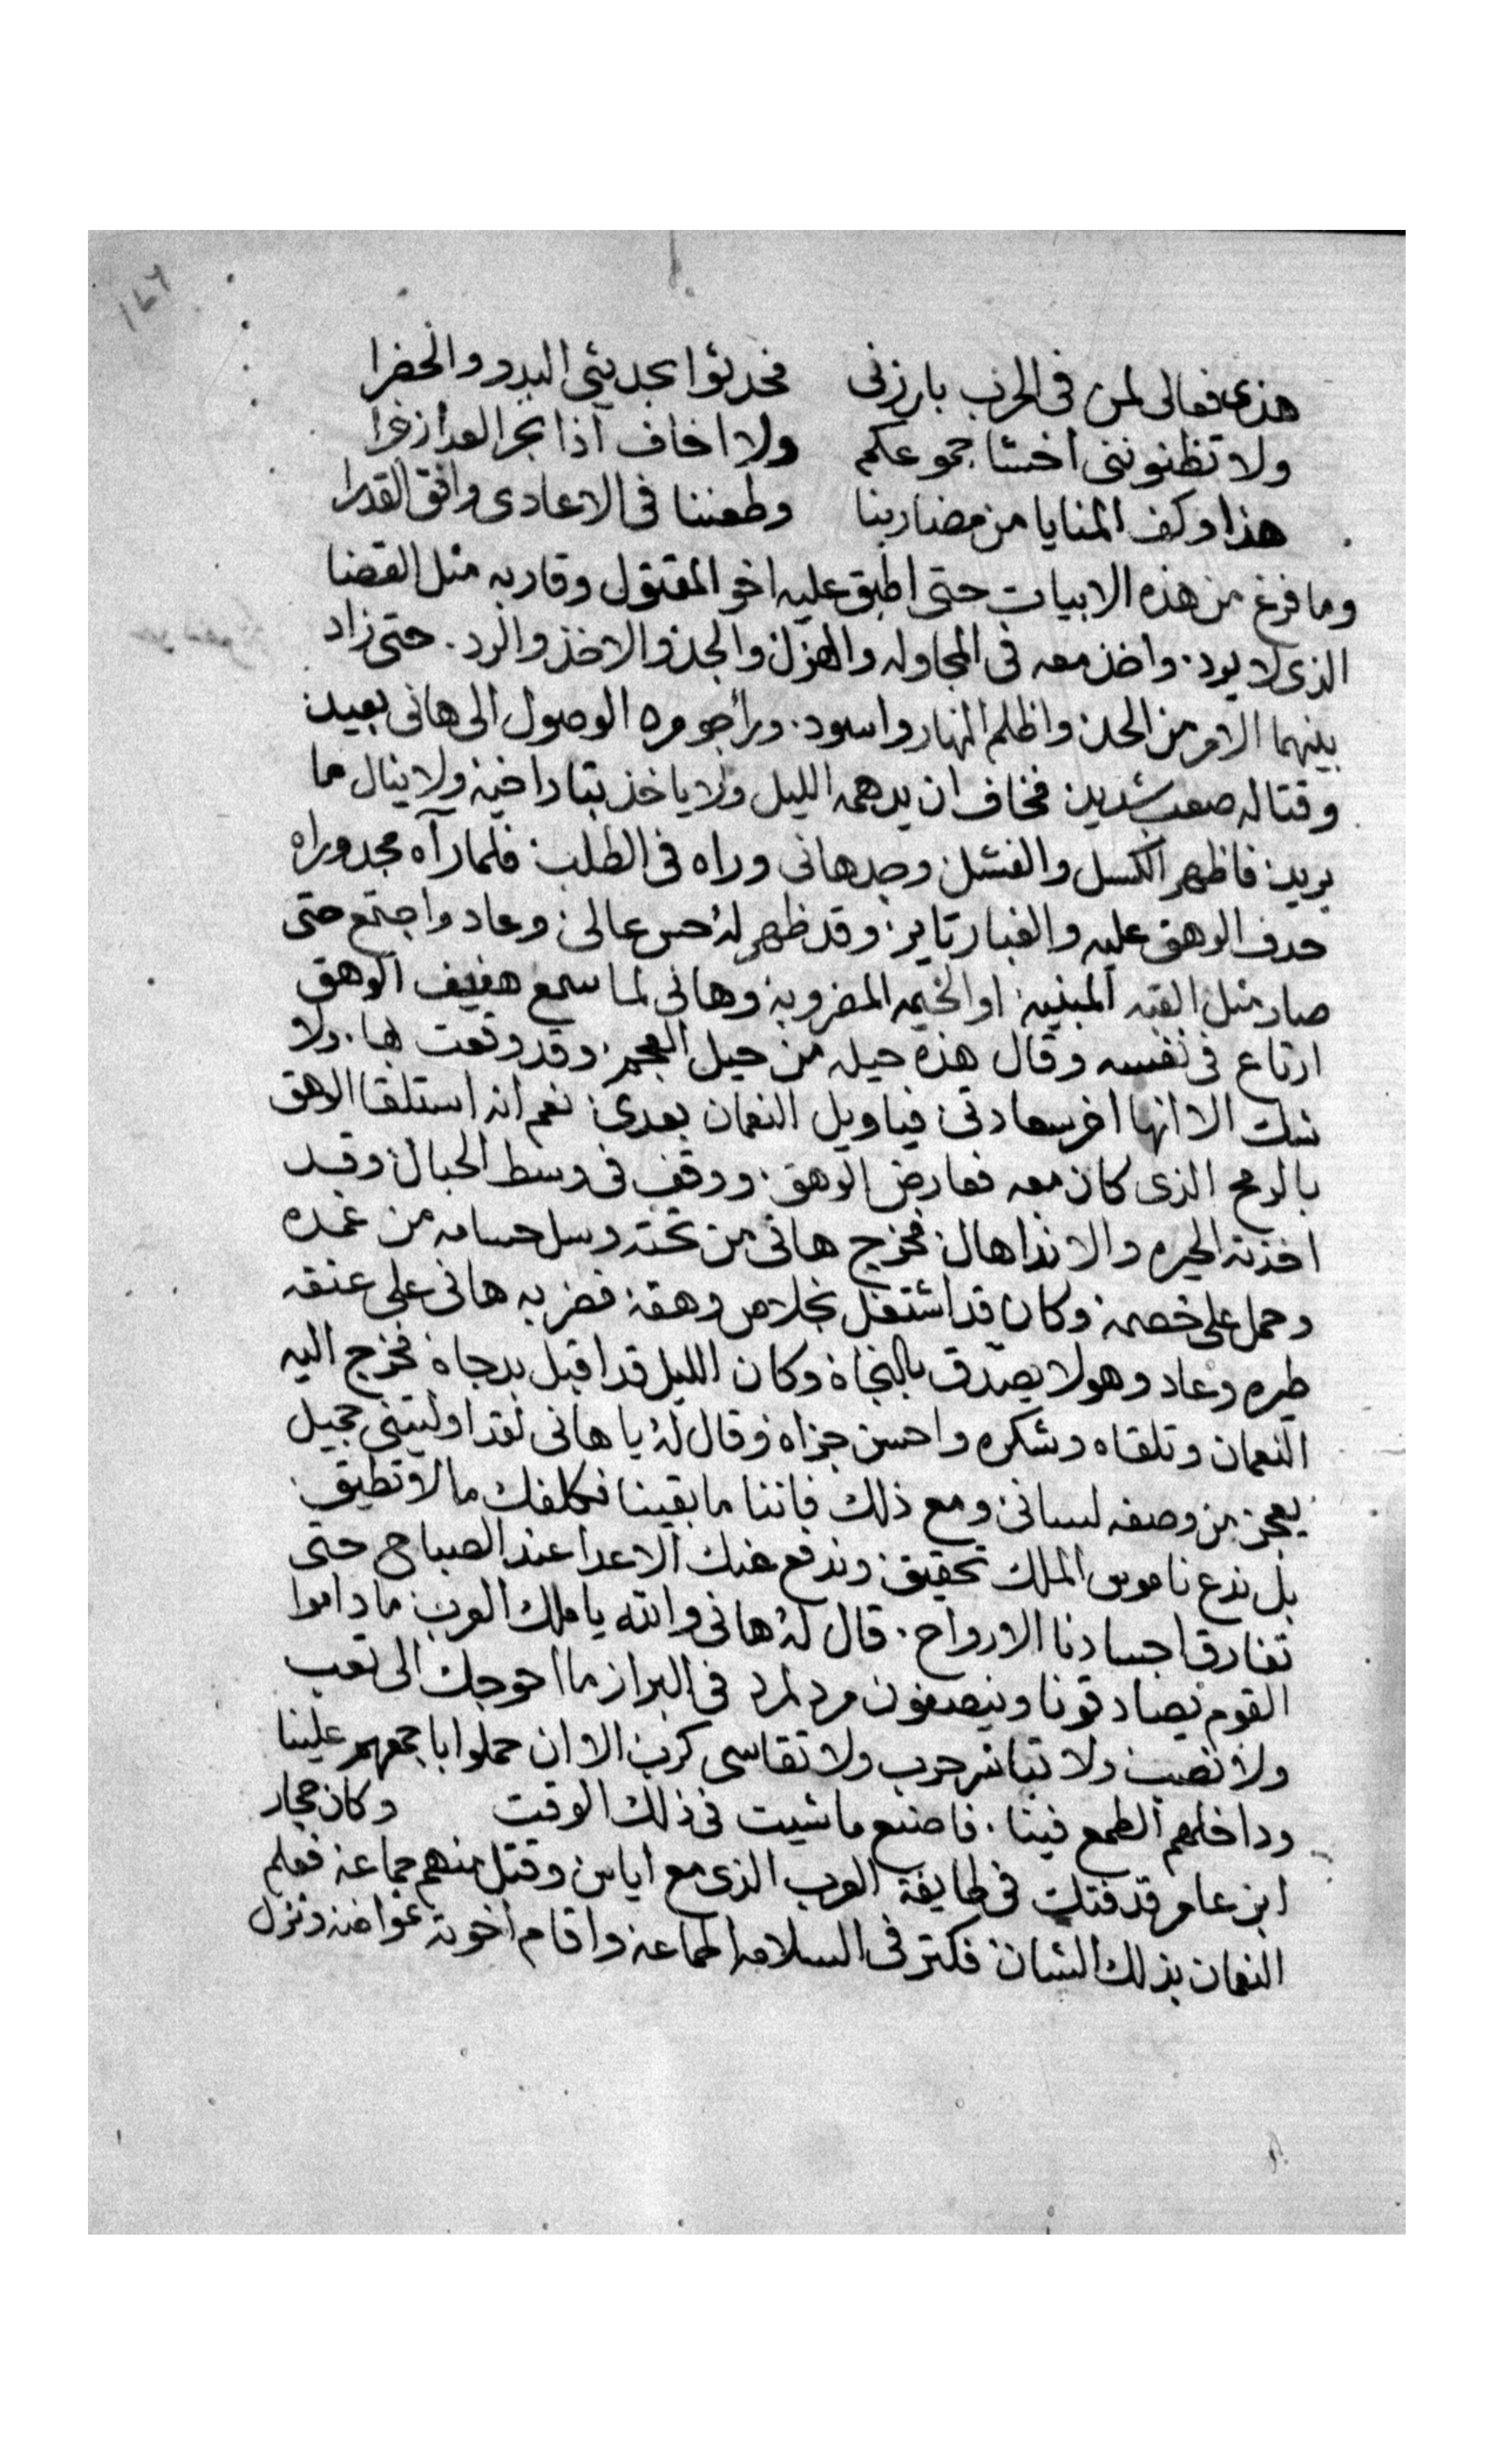 هذى فعالى لمن فى الحرب بارزنى فحدثوا بحديثى البدو والحضرا
ولا تظنوننى اخشا جموعكم ولا اخاف اذا بحر العدا زخرا
هذا وكف المنايا من مضاربنا وطعننا فى الاعادى وافق القدرا
وما فرغ من هذه الابيات حتى اطبق عليه اخو المقتول وقاربه مثل القضا
الذى لا يرد. واخذ معه فى المجاوله والهزل والجد والاخذ والرد. حتى زاد
بينهما الامر من الحد واظلم النهار واسود. وراجومره الوصول الى هانى بعيد
وقتاله صعب شديد فخاف ان يدهمه الليل ولا ياخذ بتار اخيه ولا ينال ما
يريد فاظهر الكسل والفشل وجد هانى وراه فى الطلب فلما رآه مجد وراه
حدف الوهق عليه والغبار تاير وقد ظهر له حس عالى وعاد واجتمع حتى
صار مثل القبه المبنيه او الخيمه المضروبه وهانى لما سمع هفيف الوهق
ارتاع فى نفسه وقال هذه حيله من حيل العجم وقد وقعت بها. ولا
شك الا انها اخر سعادتى فياويل النعمان بعدى نعم انه استلقا الاهق
بالرمح الذى كان معه فعارض الوهق. ووقف فى وسط الحبال وقد
اخذته الحيره والانداهال فخرج هانى من تحته وسل حسامه من غمده
وحمل على خصمه وكان قد اشتغل بخلاص وهقه فضربه هانى على عنقه
طيره وعاد وهو لا يصدق بالنجاة وكان الليل قد اقبل بدجاه فخرج اليه
النعمان وتلقاه وشكره واحسن جزاه وقال له يا هانى لقد اوليتنى جميل
يعجز من وصفه لسانى ومع ذلك فاننا ما بقينا نكلفك ما لا تطيق
بل ندع ناموس الملك تحقيق وندفع عنك الاعدا عند الصباح حتى
تفارق اجسادنا الارواح. قال له هانى والله يا ملك العرب ما داموا
القوم يصادقونا وينصفون مرد لمرد فى البراز ما احوجك الى تعب
ولا نصب ولا تباشر حرب ولا تقاسى كرب الا ان حملوا باجمعهم علينا
وداخلهم الطمع فينا. فاصنع ما شيت فى ذلك الوقت وكان حجار
ابن عامر قد فتك فى طايفة العرب الذى مع اياس وقتل منهم جماعه فعلم
النعمان بذلك الشان فكتر فى السلامه اطماعه واقام اخوته عواضه ونزل